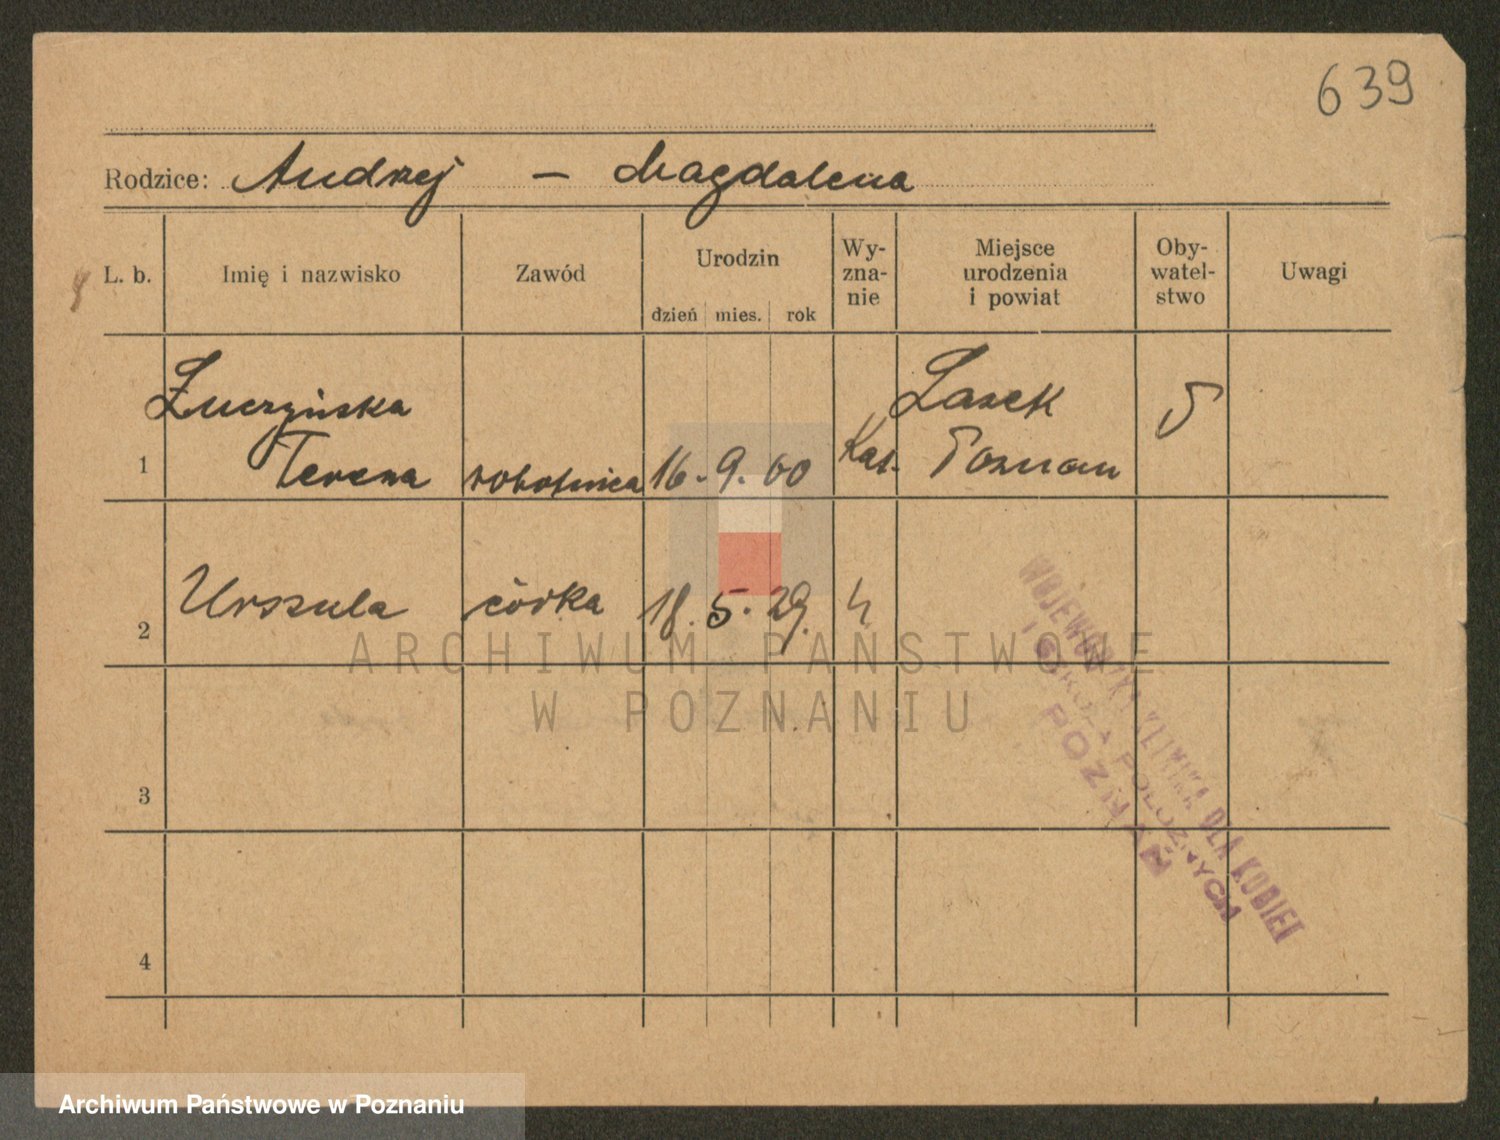 639
Rodzice: Andrzej — Magdalena
L. b. Imię i nazwisko Zawód Urodzin dzień mies. rok Wyznanie Miejsce urodzenia i powiat Obywatelstwo Uwagi
Łuczyńska Lasek
1 Teresa robotnica 16. 9. 00 Kat. Poznań
2 Urszula córka 18. 5. 29.
3
4
WOJEWÓDZKA KLINIKA DLA KOBIET
I SZKOŁA POŁOŻNYCH
POZNAŃ
ARCHIWUM PAŃSTWOWE
W POZNANIU
Archiwum Państwowe w Poznaniu